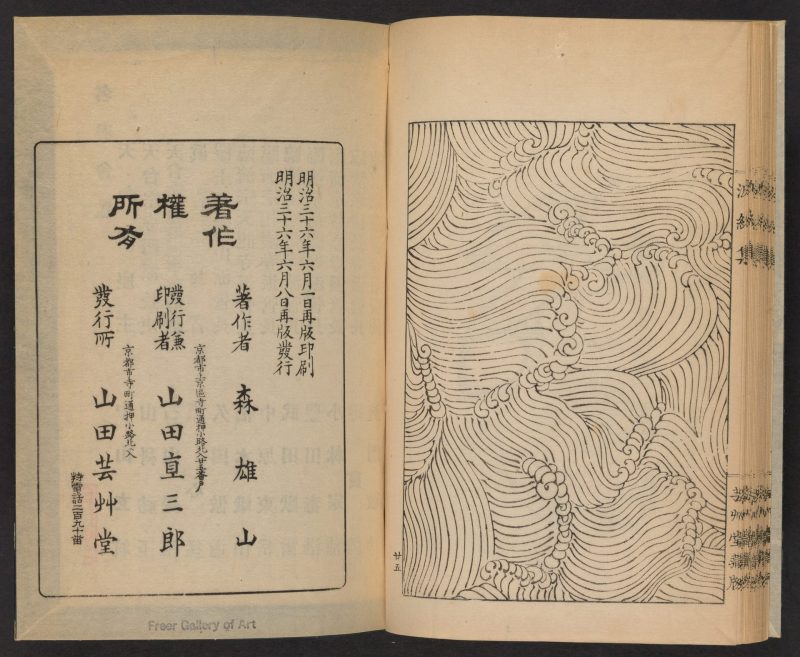 波紋集
芸艸堂藏版
廿五
明治三十六年六月一日再版印刷
明治三十六年六月八日再版發行
著作
權
所有
著作者 森雄山
京都市上京區寺町通押小路北入廿五番戸
發行兼
印刷者 山田直三郎
京都市寺町通押小路北入
發行所 山田芸艸堂
特電話二百九十番
Freer Gallery of Art